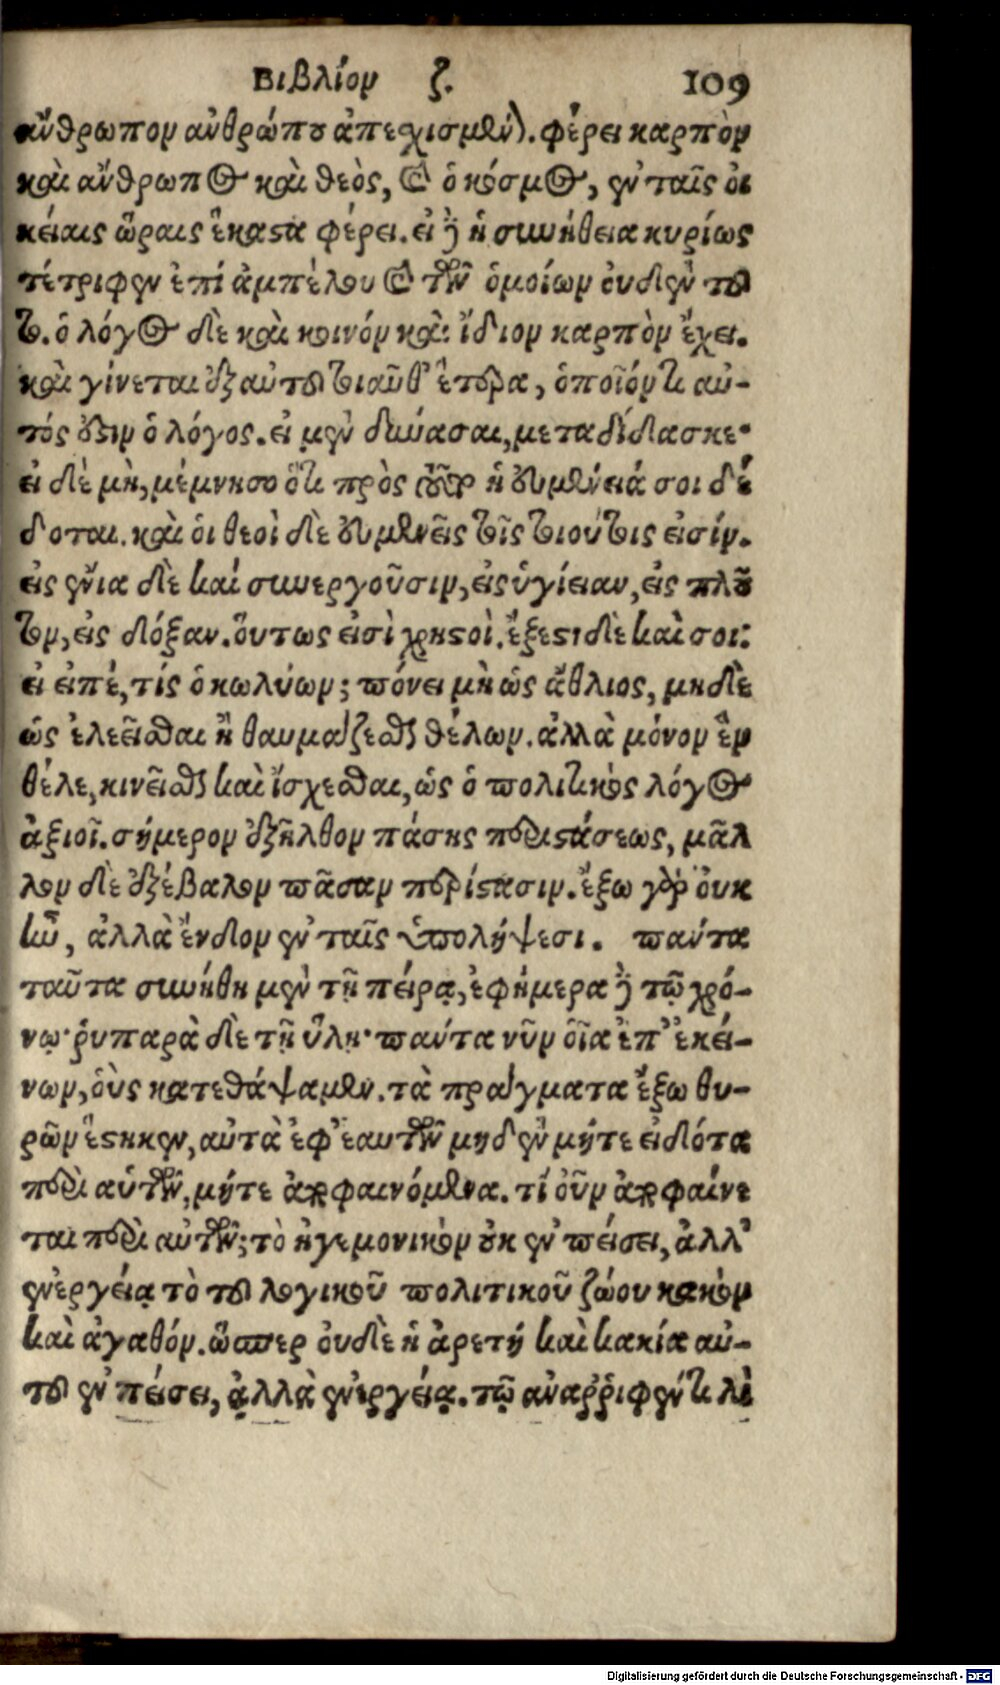 Βιβλίον ζ. 109
ἄνθρωπον ἀνθρώπου ἀπεσχισμένον. φέρει καρπὸν
καὶ ἄνθρωπος καὶ θεὸς, καὶ ὁ κόσμος, ἐν ταῖς οἰ
κείαις ὥραις ἕκαστα φέρει. εἰ δὲ ἡ συνήθεια κυρίως
τέτριφεν ἐπὶ ἀμπέλου καὶ τῶν ὁμοίων οὐδὲν τοῦ
το. ὁ λόγος δὲ καὶ κοινόν καὶ ἴδιον καρπὸν ἔχει.
καὶ γίνεται ἐξ αὐτοῦ τοιαῦθ' ἕτερα, ὁποῖόν τι αὐ-
τός ἐστιν ὁ λόγος. εἰ μὲν δύνασαι, μεταδίδασκε·
εἰ δὲ μὴ, μέμνησο ὅτι πρὸς τοῦτο ἡ εὐμένειά σοι δέ
δοται. καὶ οἱ θεοὶ δὲ εὐμενεῖς τοῖς τοιούτοις εἰσίν.
εἰς ἔνια δὲ καὶ συνεργοῦσιν, εἰς ὑγίειαν, εἰς πλοῦ
τον, εἰς δόξαν. οὕτως εἰσὶ χρηστοὶ. ἔξεστι δὲ καὶ σοι:
εἰ εἰπέ, τίς ὁ κωλύων; πόνει μὴ ὡς ἄθλιος, μηδὲ
ὡς ἐλεεῖσθαι ἢ θαυμάζεσθαι θέλων. ἀλλὰ μόνον ἓν
θέλε, κινεῖσθαι καὶ ἴσχεσθαι, ὡς ὁ πολιτικὸς λόγος
ἀξιοῖ. σήμερον ἐξῆλθον πάσης περιστάσεως, μᾶλ
λον δὲ ἐξέβαλον πᾶσαν περίστασιν. ἔξω γὰρ οὐκ
ἦν, ἀλλὰ ἔνδον ἐν ταῖς ὑπολήψεσι. πάντα
ταῦτα συνήθη μὲν τῇ πείρᾳ, ἐφήμερα δὲ τῷ χρό-
νῳ· ῥυπαρὰ δὲ τῇ ὕλῃ· πάντα νῦν οἷα ἐπ' ἐκεί-
νων, οὓς κατεθάψαμεν. τὰ πράγματα ἔξω θυ-
ρῶν ἕστηκεν, αὐτὰ ἐφ' ἑαυτῶν μηδὲν μήτε εἰδότα
περὶ αὑτῶν, μήτε ἀποφαινόμενα. τί οὖν ἀποφαίνε
ται περὶ αὐτῶν; τὸ ἡγεμονικὸν οὐκ ἐν πείσει, ἀλλ'
ἐνεργείᾳ τὸ τοῦ λογικοῦ πολιτικοῦ ζώου κακὸν
καὶ ἀγαθόν. ὥσπερ οὐδὲ ἡ ἀρετή καὶ κακία αὐ-
τοῦ ἐν πείσει, ἀλλὰ ἐνεργείᾳ. τῷ ἀναῤῥιφέντι λί
Digitalisierung gefördert durch die Deutsche Forschungsgemeinschaft - DFG